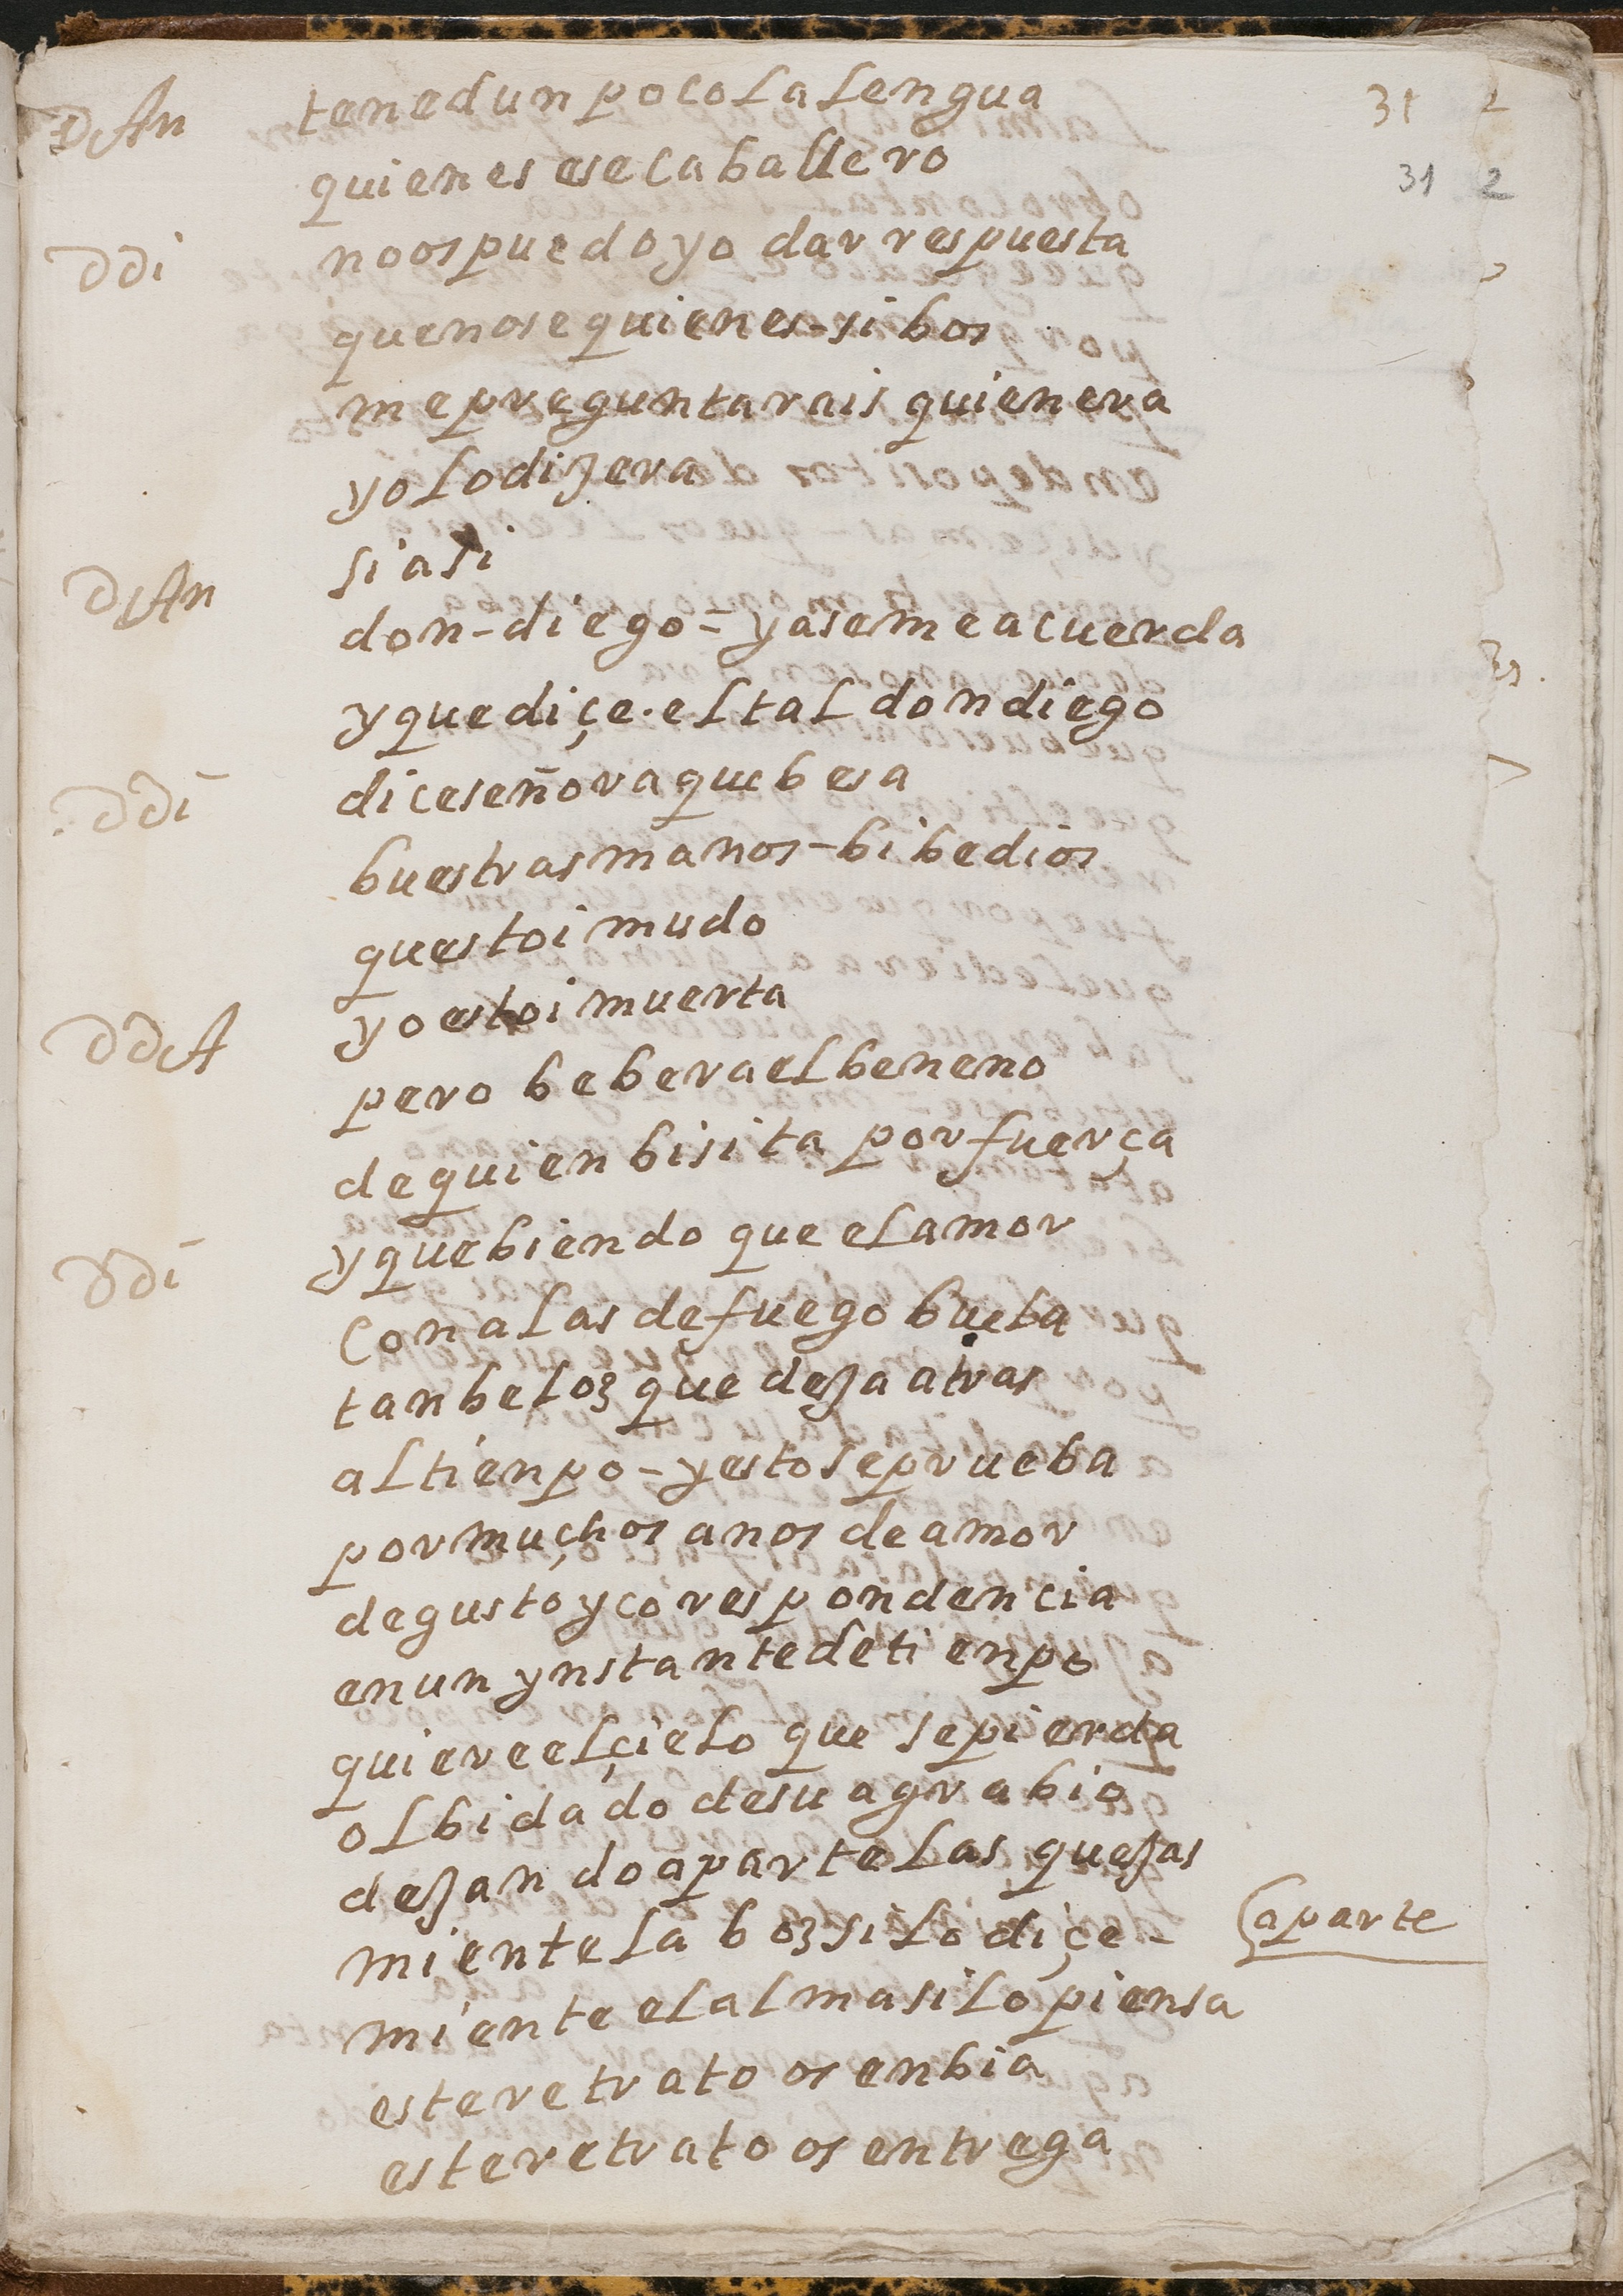 31 2
31 2
D An tened un poco la lengua
quien es ese caballero
D di no os puedo yo dar respuesta
que no se quien es - si bos
me preguntarais quien era
yo lo dijera
si asi
D An don - diego = ya se me acuerda
y que diçe · el tal don diego
D di dice señora que besa
buestras manos - bibe dios
questoi mudo
yo estoi muerta
D d A pero bebera el beneno
de quien bisita por fuerça
D di y que biendo que el amor
con alas de fuego buela
tan beloz que deja atras
al tienpo - y esto se prueba
por muchos anos de amor
de gusto y corespondencia
en un ynstante de tienpo
quiere el çielo que se pierda
olbidado de su agrabio
dejando aparte las quejas
miente la boz si lo diçe - aparte
miente el alma si lo piensa
este retrato os enbia
este retrato os entrega